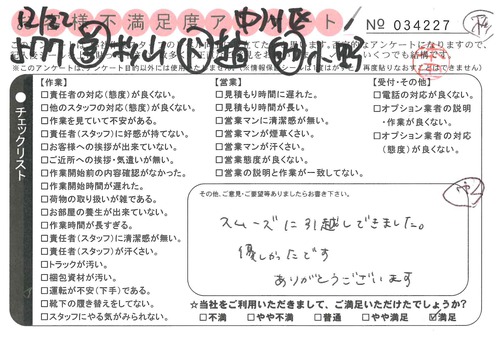 12/22 中川区
お客様不満足度アンケート
No 034227
※このアンケートは、
チェックリスト
【作業】
□責任者の対応(態度)が良くない。
□他のスタッフの対応(態度)が良くない。
□作業を見ていて不安がある。
□責任者(スタッフ)に好感が持てない。
□お客様への挨拶が出来ていない。
□ご近所への挨拶・気遣いが無い。
□作業開始前の内容確認がなかった。
□作業開始時間が遅れた。
□荷物の取り扱いが雑である。
□お部屋の養生が出来ていない。
□作業時間が長すぎる。
□責任者(スタッフ)に清潔感が無い。
□責任者(スタッフ)が汗くさい。
□トラックが汚い。
□梱包資材が汚い。
□運転が不安(下手)である。
□靴下の履き替えをしてない。
□スタッフにやる気がみられない。
【営業】
□見積もり時間に遅れた。
□見積もり時間が長い。
□営業マンに清潔感が無い。
□営業マンが煙草くさい。
□営業マンが汗くさい。
□営業態度が良くない。
□営業の説明と作業が一致してない。
【受付・その他】
□電話の対応が良くない。
□オプション業者の説明
・作業が良くない。
□オプション業者の対応
(態度)が良くない。
その他、ご意見・ご要望等ありましたらお書き下さい。
スムーズに引越しできました。
優しかったです
ありがとうございます
☆当社をご利用いただきまして、ご満足いただけたでしょうか?
□不満 □やや不満 □普通 □やや満足 ☑満足